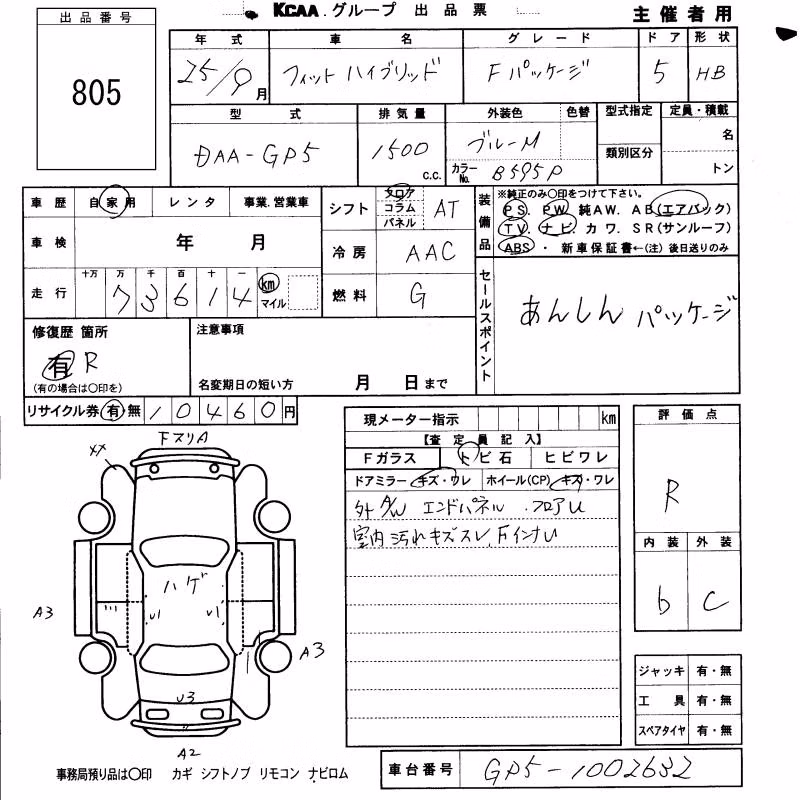 KCAA.グループ 出品票
主催者用
出品番号
805
年式 車名 グレード ドア 形状
25/9月 フィットハイブリッド Fパッケージ 5 HB
型式 排気量 外装色 色替 型式指定 定員・積載
DAA-GP5 1500 c.c. ブルーM 類別区分 名
カラーNo. B595P トン
車歴 自家用 レンタ 事業.営業車
車検 年 月
走行 十万 万 千 百 十 一
7 3 6 1 4 km マイル
シフト フロア コラム パネル AT
冷房 AAC
燃料 G
装備品 ※純正のみ〇印をつけて下さい。
PS. PW. 純AW. AB(エアバック)
TV. ナビ. カワ. SR(サンルーフ)
ABS ・ 新車保証書←(注) 後日送りのみ
セールスポイント
あんしんパッケージ
修復歴 箇所
有 R
(有の場合は〇印を)
注意事項
名変期日の短い方 月 日まで
リサイクル券 有 無 10460円
現メーター指示 km
【査定員記入】
Fガラス トビ石 ヒビワレ
ドアミラー キズ・ワレ ホイール(CP) キズ・ワレ
外 エンドパネル.フロアU
室内汚れキズスレ.FインナU
評価点
R
内装 外装
b C
ジャッキ 有・無
工具 有・無
スペアタイヤ 有・無
下スリA
XX
ハゲ
U1 U1
A3
A3
U3
A2
事務局預り品は〇印 カギ シフトノブ リモコン ナビロム
車台番号 GP5-1002632